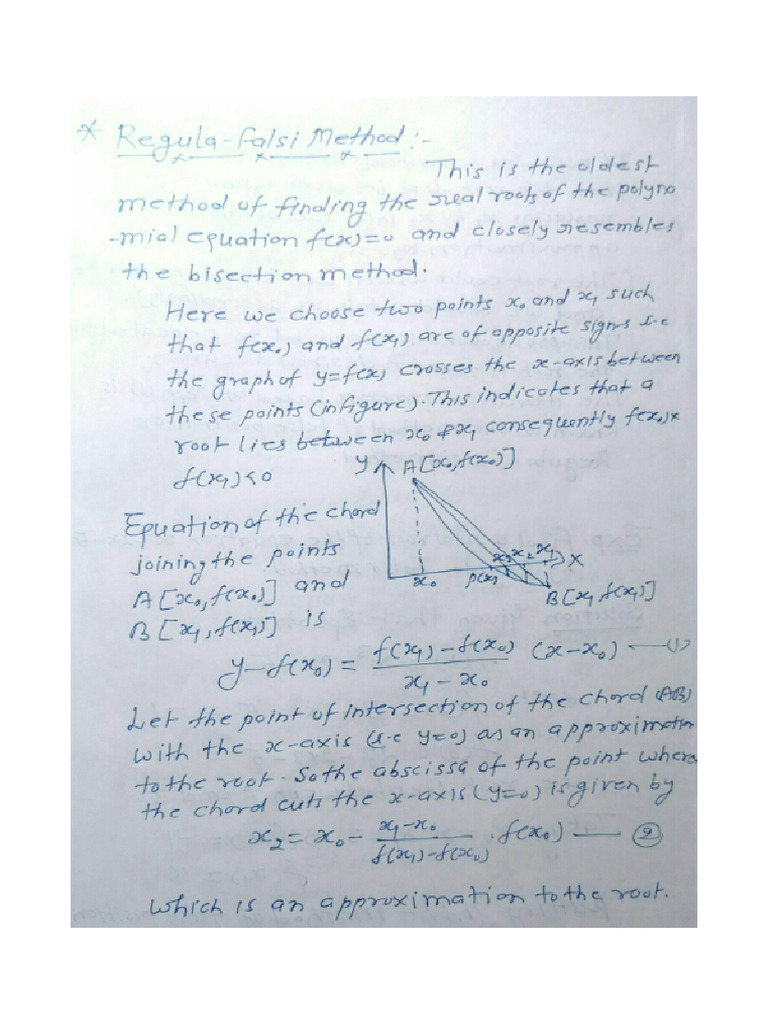 * Regula-falsi Method:-
This is the oldest
method of finding the real roots of the polyno
-mial equation f(x)=0 and closely resembles
the bisection method.
Here we choose two points x₀ and x₁ such
that f(x₀) and f(x₁) are of opposite signs i.e
the graph of y=f(x) crosses the x-axis between
these points (in figure). This indicates that a
root lies between x₀ & x₁ consequently f(x₀)x
f(x₁)<0
Y A[x₀,f(x₀)]
Equation of the chord
joining the points
x₃ x₂ x₁ X
x₀ P(x)
A[x₀,f(x₀)] and
B[x₁,f(x₁)]
B[x₁,f(x₁)] is
y-f(x₀) = f(x₁)-f(x₀) / x₁-x₀ (x-x₀) —(1)
Let the point of intersection of the chord (AB)
with the x-axis (i.e y=0) as an approximation
to the root. So the abscissa of the point where
the chord cuts the x-axis (y=0) is given by
x₂ = x₀ - x₁-x₀ / f(x₁)-f(x₀) .f(x₀) — (2)
which is an approximation to the root.